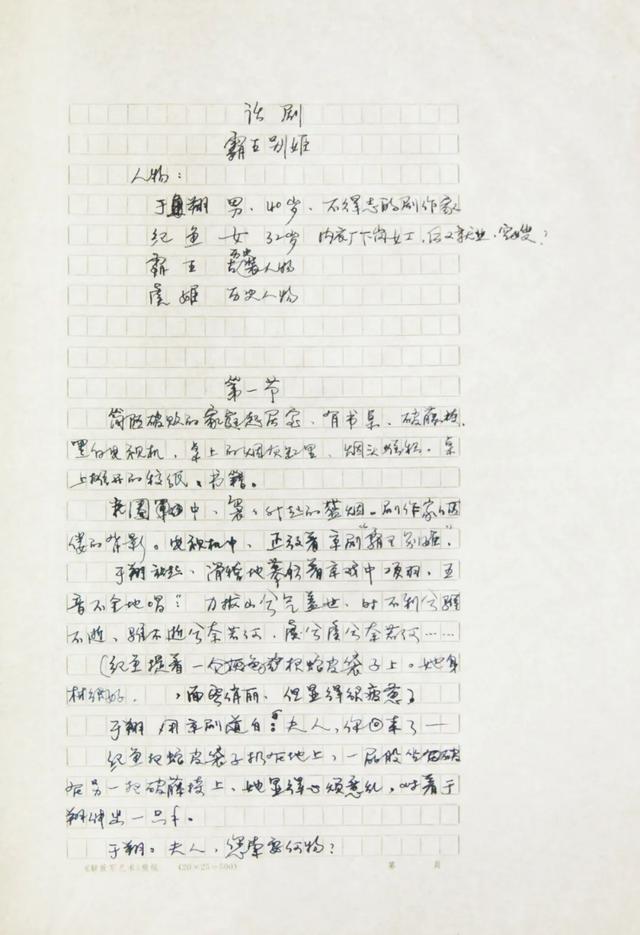 话剧
霸王别姬
人物：
于翔 男、40岁、不得志的剧作家
纪鱼 女 32岁 内衣厂下岗女工，后又就业，家嫂？
霸王 历史人物
虞姬 历史人物
第一节
简陋破败的家庭起居室，有书桌、破藤椅、
黑白电视机，桌上的烟灰缸里，烟头堆积。桌
上摊开的稿纸、书籍。
光圈中，袅袅升起的蓝烟。剧作家佝
偻的背影。电视机中，正放着京剧“霸王别姬”。
于翔站起，滑稽地摹仿着京戏中项羽，五
音不全地唱：力拔山兮气盖世，时不利兮骓
不逝，骓不逝兮奈若何，虞兮虞兮奈若何……
（纪鱼提着一个蛇皮袋子上。她身
材很好，面容俏丽，但显得很疲惫了
于翔 用京剧道白：夫人，你回来了——
纪鱼把蛇皮袋子扔在地上，一屁股坐
在另一把破藤椅上，她显得心烦意乱，对着于
翔伸出一只手。
于翔：夫人，您索要何物？
《解放军艺术》稿纸 (20×25=500) 第 页